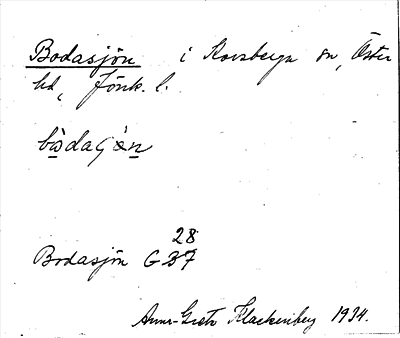 Bodasjön i Korsberga sn, Öster
hd, Jönk. l.
28
Bodasjön G 37
Anna-Greta Flackenberg 1934.